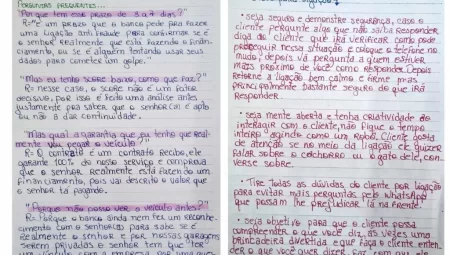 PERGUNTAS FREQUENTES...
"Por que tem esse prazo de 3 a 7 dias?"
R= É um prazo que o banco pede para fazer
uma ligação anti fraude para confirmar se é
o senhor Realmente que está fazendo o finan-
ciamento, ou se é alguém tentando usar seus
dados para cometer um golpe."
"Mas eu tenho score baixo, como que faz?"
R= nesse caso, o score não é um fator
decisivo, por isso é feito uma análise antes
justamente pra saber que o senhor(a) é apto
ou não a dar continuidade.
"Mas qual a garantia que eu tenho que Real-
mente vou pegar o veículo?"
R= O contrato é um contrato Recibo, ele
garante 100% do nosso serviço e comprova
que o senhor Realmente está fazendo um
financiamento, pois vai descrito o valor que
o senhor tá pagando.
"Porque não posso ver o veículo antes?"
R= Porque o banco ainda nem fez um reconhe-
cimento com o senhor(a) para saber se é
Realmente o senhor e por nossas garagens
serem privadas o senhor tem que "ter"
um vínculo com a empresa por uma que
ligação?
• Seja seguro e demonstre segurança, caso o
cliente pergunte algo que não saiba Responder
diga ao cliente que irá verificar como pode
prosseguir nessa situação e coloque o telefone no
mudo, depois vá pergunte a quem estiver
mais próximo de você como responder. Depois
Retorne a ligação bem calmo e firme mas
principalmente bastante seguro do que irá
Responder.
• Seja mente aberta e tenha criatividade ao
interagir com o cliente, não fique o tempo
inteiro agindo como um Robô, cliente gosta
de atenção se no meio da ligação ele quiser
falar sobre o cachorro ou o gato dele, con-
verse sobre.
• Tire todas as dúvidas do cliente por ligação
para evitar mais perguntas pelo whatsApp
que possam lhe prejudicar lá na frente.
• Seja objetivo para que o cliente possa
compreender o que você diz, as vezes uma
brincadeira divertida e que faça o cliente enten-
der o que você quer dizer, faz com que ele